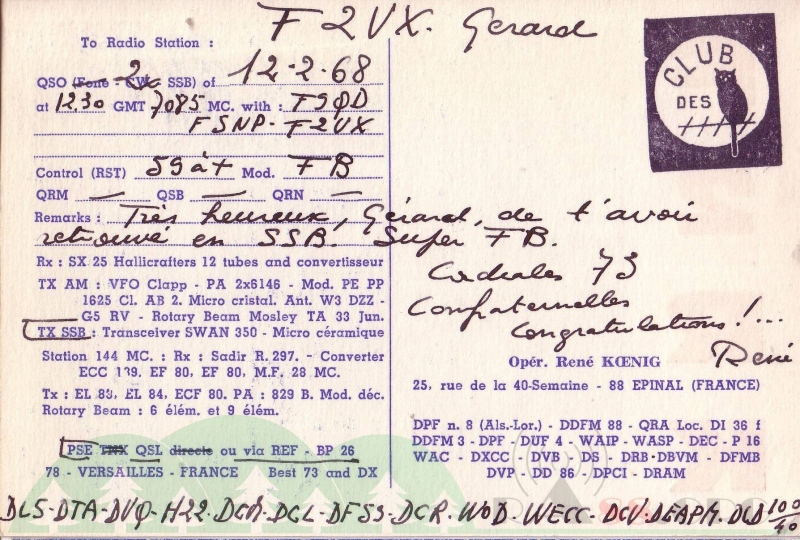 F2VX. Gerard
To Radio Station :
QSO (Fone - CW, SSB) of 12-2-68
at 12.30 GMT 7085 MC. with : F9QD
F5NP - F2VX
Control (RST) 59 à + Mod. FB
QRM — QSB — QRN —
Remarks : Très heureux, Gérard, de t'avoir
retrouvé en SSB. Super FB.
Cordiales 73
Confraternelles
Congratulations !...
René
Rx : SX 25 Hallicrafters 12 tubes and convertisseur
TX AM : VFO Clapp - PA 2x6146 - Mod. PE PP
1625 Cl. AB 2. Micro cristal. Ant. W3 DZZ -
G5 RV - Rotary Beam Mosley TA 33 Jun.
TX SSB : Transceiver SWAN 350 - Micro céramique
Station 144 MC. : Rx : Sadir R. 297. - Converter
ECC 189, EF 80, EF 80, M.F. 28 MC.
Tx : EL 83, EL 84, ECF 80. PA : 829 B. Mod. déc.
Rotary Beam : 6 élém. et 9 élém.
PSE TNX QSL directe ou via REF - BP 26
78 - VERSAILLES - FRANCE Best 73 and DX
CLUB
DES
Opér. René KŒNIG
25, rue de la 40-Semaine - 88 EPINAL (FRANCE)
DPF n. 8 (Als.-Lor.) - DDFM 88 - QRA Loc. DI 36 f
DDFM 3 - DPF - DUF 4 - WAIP - WASP - DEC - P 16
WAC - DXCC - DVB - DS - DRB - DBVM - DFMB
DVP - DD 86 - DPCI - DRAM
DLS - DTA - DVQ - H22 - DCM - DCL - DFS3 - DCR - WOD - WECC - DCV - DEAPM - DLD 100/40